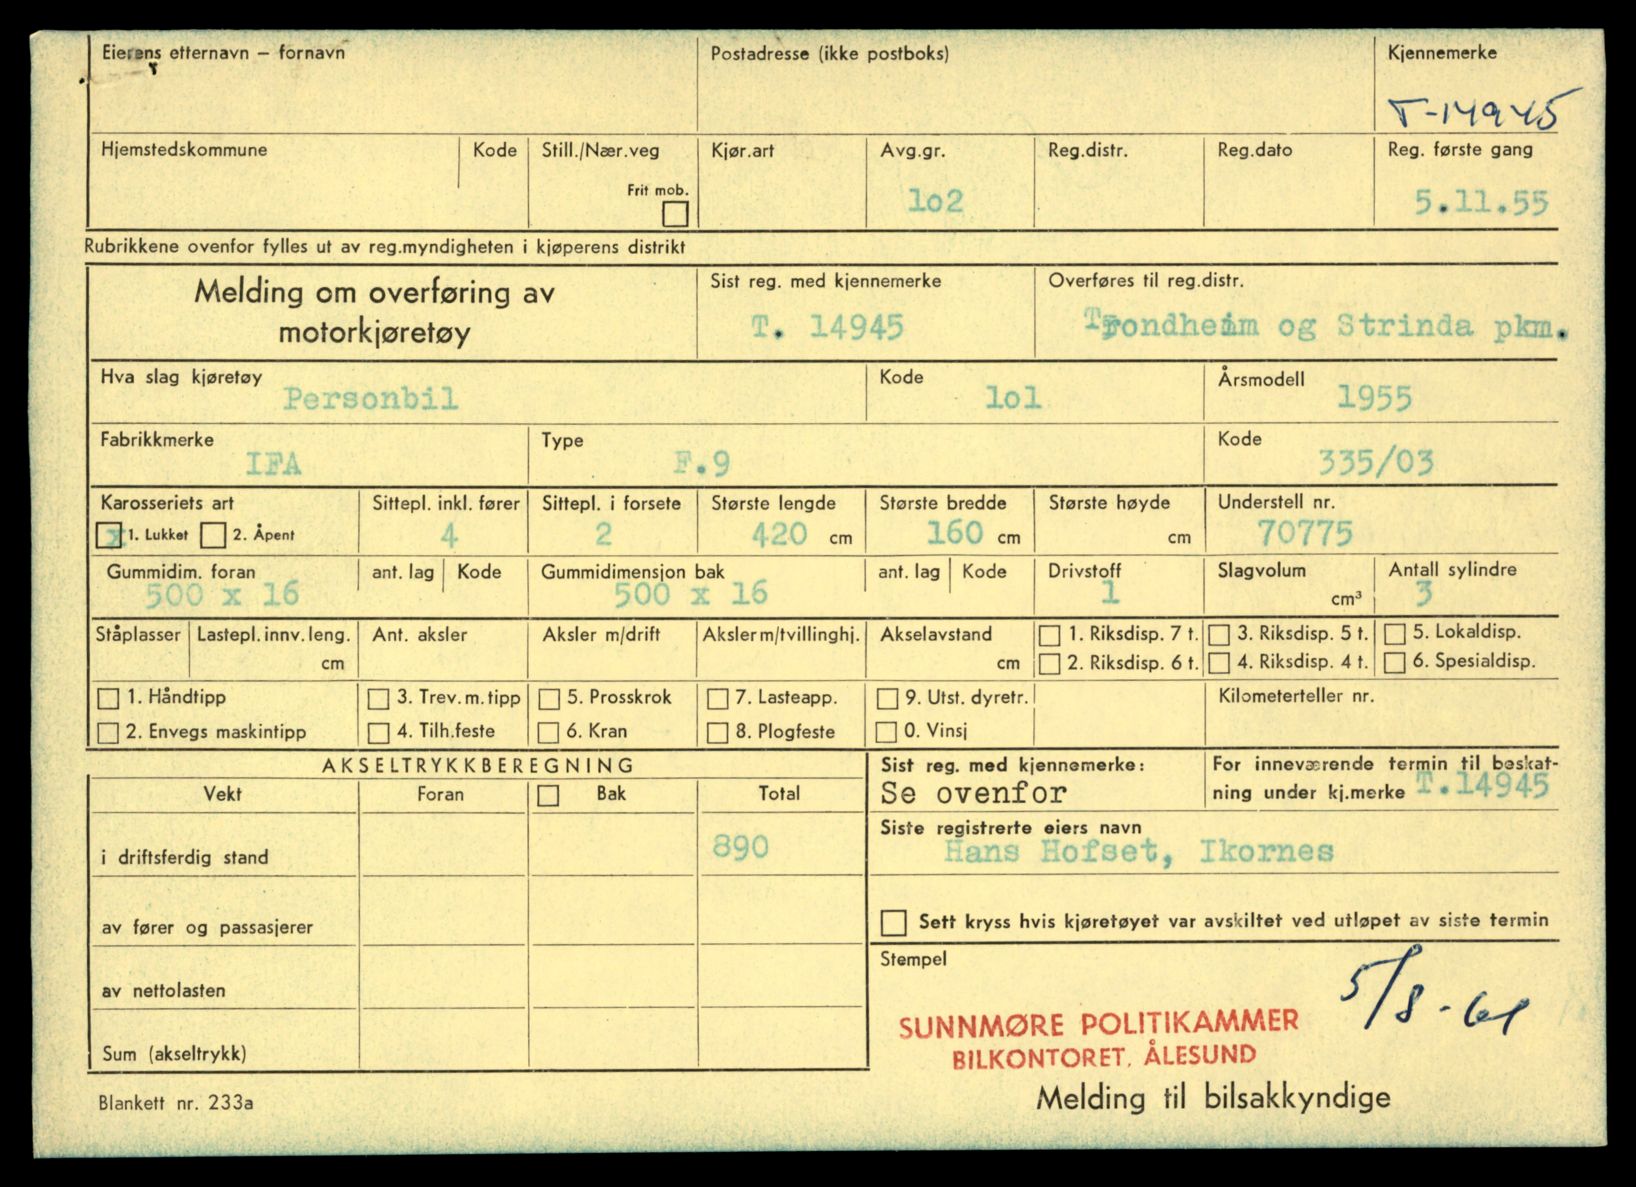 Eierens etternavn – fornavn
Postadresse (ikke postboks)
Kjennemerke
T-14945
Hjemstedskommune
Kode
Still./Nær.veg
Frit mob.
Kjør.art
Avg.gr.
lo2
Reg.distr.
Reg.dato
Reg. første gang
5.11.55
Rubrikkene ovenfor fylles ut av reg.myndigheten i kjøperens distrikt
Melding om overføring av
motorkjøretøy
Sist reg. med kjennemerke
T. 14945
Overføres til reg.distr.
Trondheim og Strinda pkm.
Hva slag kjøretøy
Personbil
Kode
lol
Årsmodell
1955
Fabrikkmerke
IFA
Type
F.9
Kode
335/03
Karosseriets art
x 1. Lukket 2. Åpent
Sittepl. inkl. fører
4
Sittepl. i forsete
2
Største lengde
420 cm
Største bredde
160 cm
Største høyde
cm
Understell nr.
70775
Gummidim. foran
500 x 16
ant. lag
Kode
Gummidimensjon bak
500 x 16
ant. lag
Kode
Drivstoff
1
Slagvolum
cm³
Antall sylindre
3
Ståplasser
Lastepl. innv. leng.
cm
Ant. aksler
Aksler m/drift
Aksler m/tvillinghj.
Akselavstand
cm
1. Riksdisp. 7 t.
2. Riksdisp. 6 t.
3. Riksdisp. 5 t.
4. Riksdisp. 4 t.
5. Lokaldisp.
6. Spesialdisp.
1. Håndtipp
2. Envegs maskintipp
3. Trev. m. tipp
4. Tilh.feste
5. Prosskrok
6. Kran
7. Lasteapp.
8. Plogfeste
9. Utst. dyretr.
0. Vinsj
Kilometerteller nr.
AKSELTRYKKBEREGNING
Vekt
Foran
Bak
Total
i driftsferdig stand
890
av fører og passasjerer
av nettolasten
Sum (akseltrykk)
Sist reg. med kjennemerke:
Se ovenfor
For inneværende termin til beskat-
ning under kj.merke T.14945
Siste registrerte eiers navn
Hans Hofset, Ikornes
Sett kryss hvis kjøretøyet var avskiltet ved utløpet av siste termin
Stempel
5/8-61
SUNNMØRE POLITIKAMMER
BILKONTORET, ÅLESUND
Melding til bilsakkyndige
Blankett nr. 233a